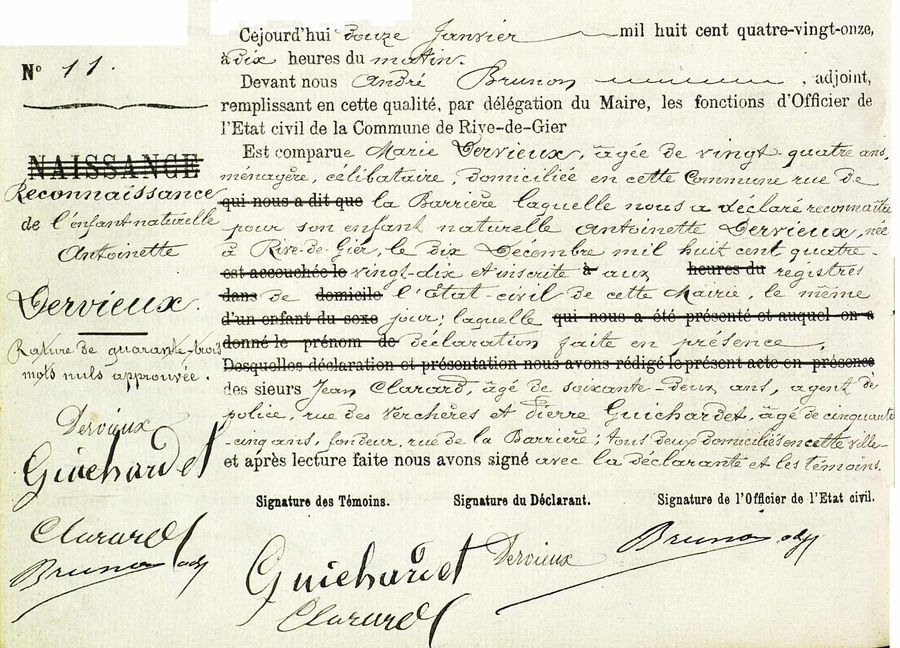 Cejourd'hui douze Janvier mil huit cent quatre-vingt-onze,
à dix heures du matin.
Nº 11.
Devant nous André Brunon, adjoint,
remplissant en cette qualité, par délégation du Maire, les fonctions d'Officier de
l'Etat civil de la Commune de Rive-de-Gier
NAISSANCE
Reconnaissance
de l'enfant naturelle
Antoinette
Dervieux.
Rature de quarante-trois
mots nuls approuvée.
Dervieux
Guichardet
Clarard
Brunon adj
Est comparue Marie Dervieux, âgée de vingt-quatre ans,
ménagère, célibataire, domiciliée en cette Commune rue de
qui nous a dit que la Barrière laquelle nous a déclaré reconnaître
pour son enfant naturelle Antoinette Dervieux, née
à Rive-de-Gier, le dix Décembre mil huit cent quatre-
est accouchée le vingt-dix et inscrite à aux heures du registres
dans de domicile l'Etat-civil de cette Mairie, le même
d'un enfant du sexe jour; laquelle qui nous a été présenté et auquel on a
donné le prénom de déclaration faite en présence,
Desquelles déclaration et présentation nous avons rédigé le présent acte en présence
des sieurs Jean Clarard, âgé de soixante-deux ans, agent de
police, rue des Verchères et Pierre Guichardet, âgé de cinquante
-cinq ans, fondeur, rue de la Barrière; tous deux domiciliés en cette ville-
et après lecture faite nous avons signé avec la déclarante et les témoins.
Signature des Témoins. Signature du Déclarant. Signature de l'Officier de l'Etat civil.
Guichardet Dervieux Brunon adj
Clarard